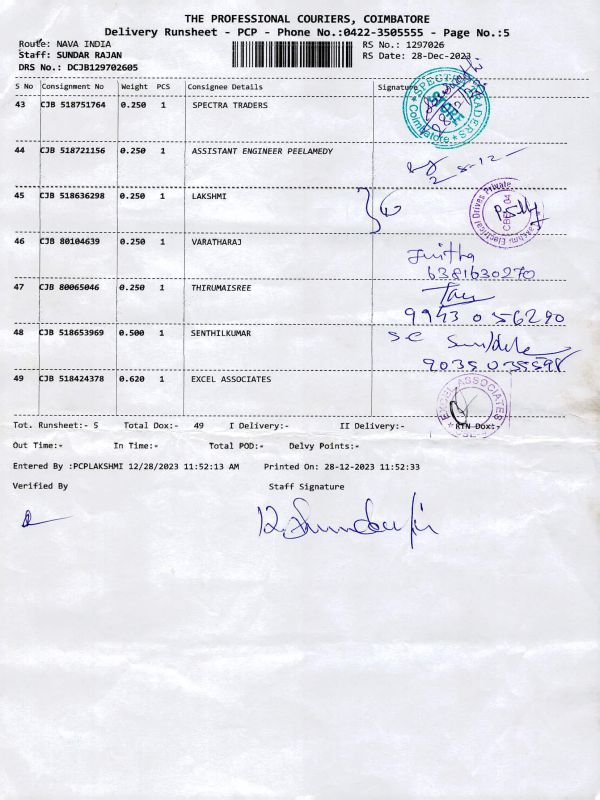 THE PROFESSIONAL COURIERS, COIMBATORE
Delivery Runsheet - PCP - Phone No.:0422-3505555 - Page No.:5
Route: NAVA INDIA
RS No.: 1297026
Staff: SUNDAR RAJAN
RS Date: 28-Dec-2023
DRS No.: DCJB129702605
S No Consignment No Weight PCS Consignee Details Signature
43 CJB 518751764 0.250 1 SPECTRA TRADERS
SPECTRA TRADERS
Coimbatore
44 CJB 518721156 0.250 1 ASSISTANT ENGINEER PEELAMEDY
45 CJB 518636298 0.250 1 LAKSHMI
Lakshmi Electrical Drives Private
46 CJB 80104639 0.250 1 VARATHARAJ
6381630270
47 CJB 80065046 0.250 1 THIRUMAISREE
99430 56290
48 CJB 518653969 0.500 1 SENTHILKUMAR
49 CJB 518424378 0.620 1 EXCEL ASSOCIATES
EXCEL ASSOCIATES
Tot. Runsheet:- 5 Total Dox:- 49 I Delivery:- II Delivery:- RTN Dox:-
Out Time:- In Time:- Total POD:- Delvy Points:-
Entered By :PCPLAKSHMI 12/28/2023 11:52:13 AM Printed On: 28-12-2023 11:52:33
Verified By Staff Signature